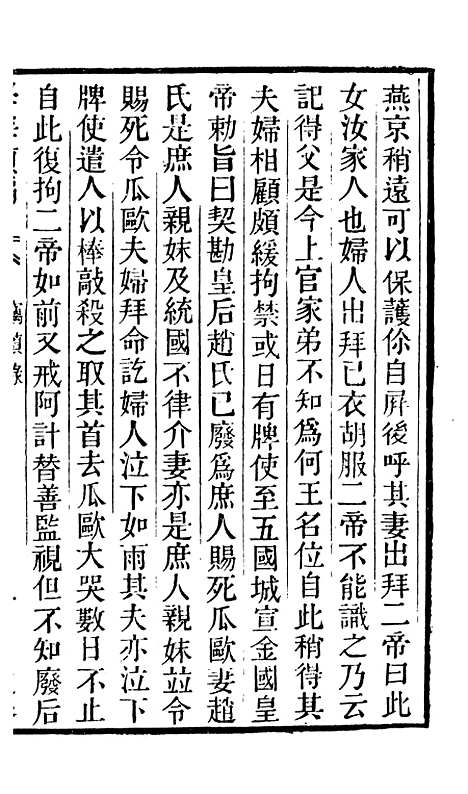 燕京稍遠可以保護你自屏後呼其妻出拜二帝曰此
女汝家人也婦人出拜已衣胡服二帝不能識之乃云
記得父是今上官家弟不知爲何王名位自此稍得其
夫婦相顧頗緩拘禁或日有牌使至五國城宣金國皇
帝勅旨曰契勘皇后趙氏已廢爲庶人賜死瓜歐妻趙
氏是庶人親妹及統國不律介妻亦是庶人親妹竝令
賜死令瓜歐夫婦拜命訖婦人泣下如雨其夫亦泣下
牌使遣人以棒敲殺之取其首去瓜歐大哭數日不止
自此復拘二帝如前又戒阿計替善監視但不知廢后